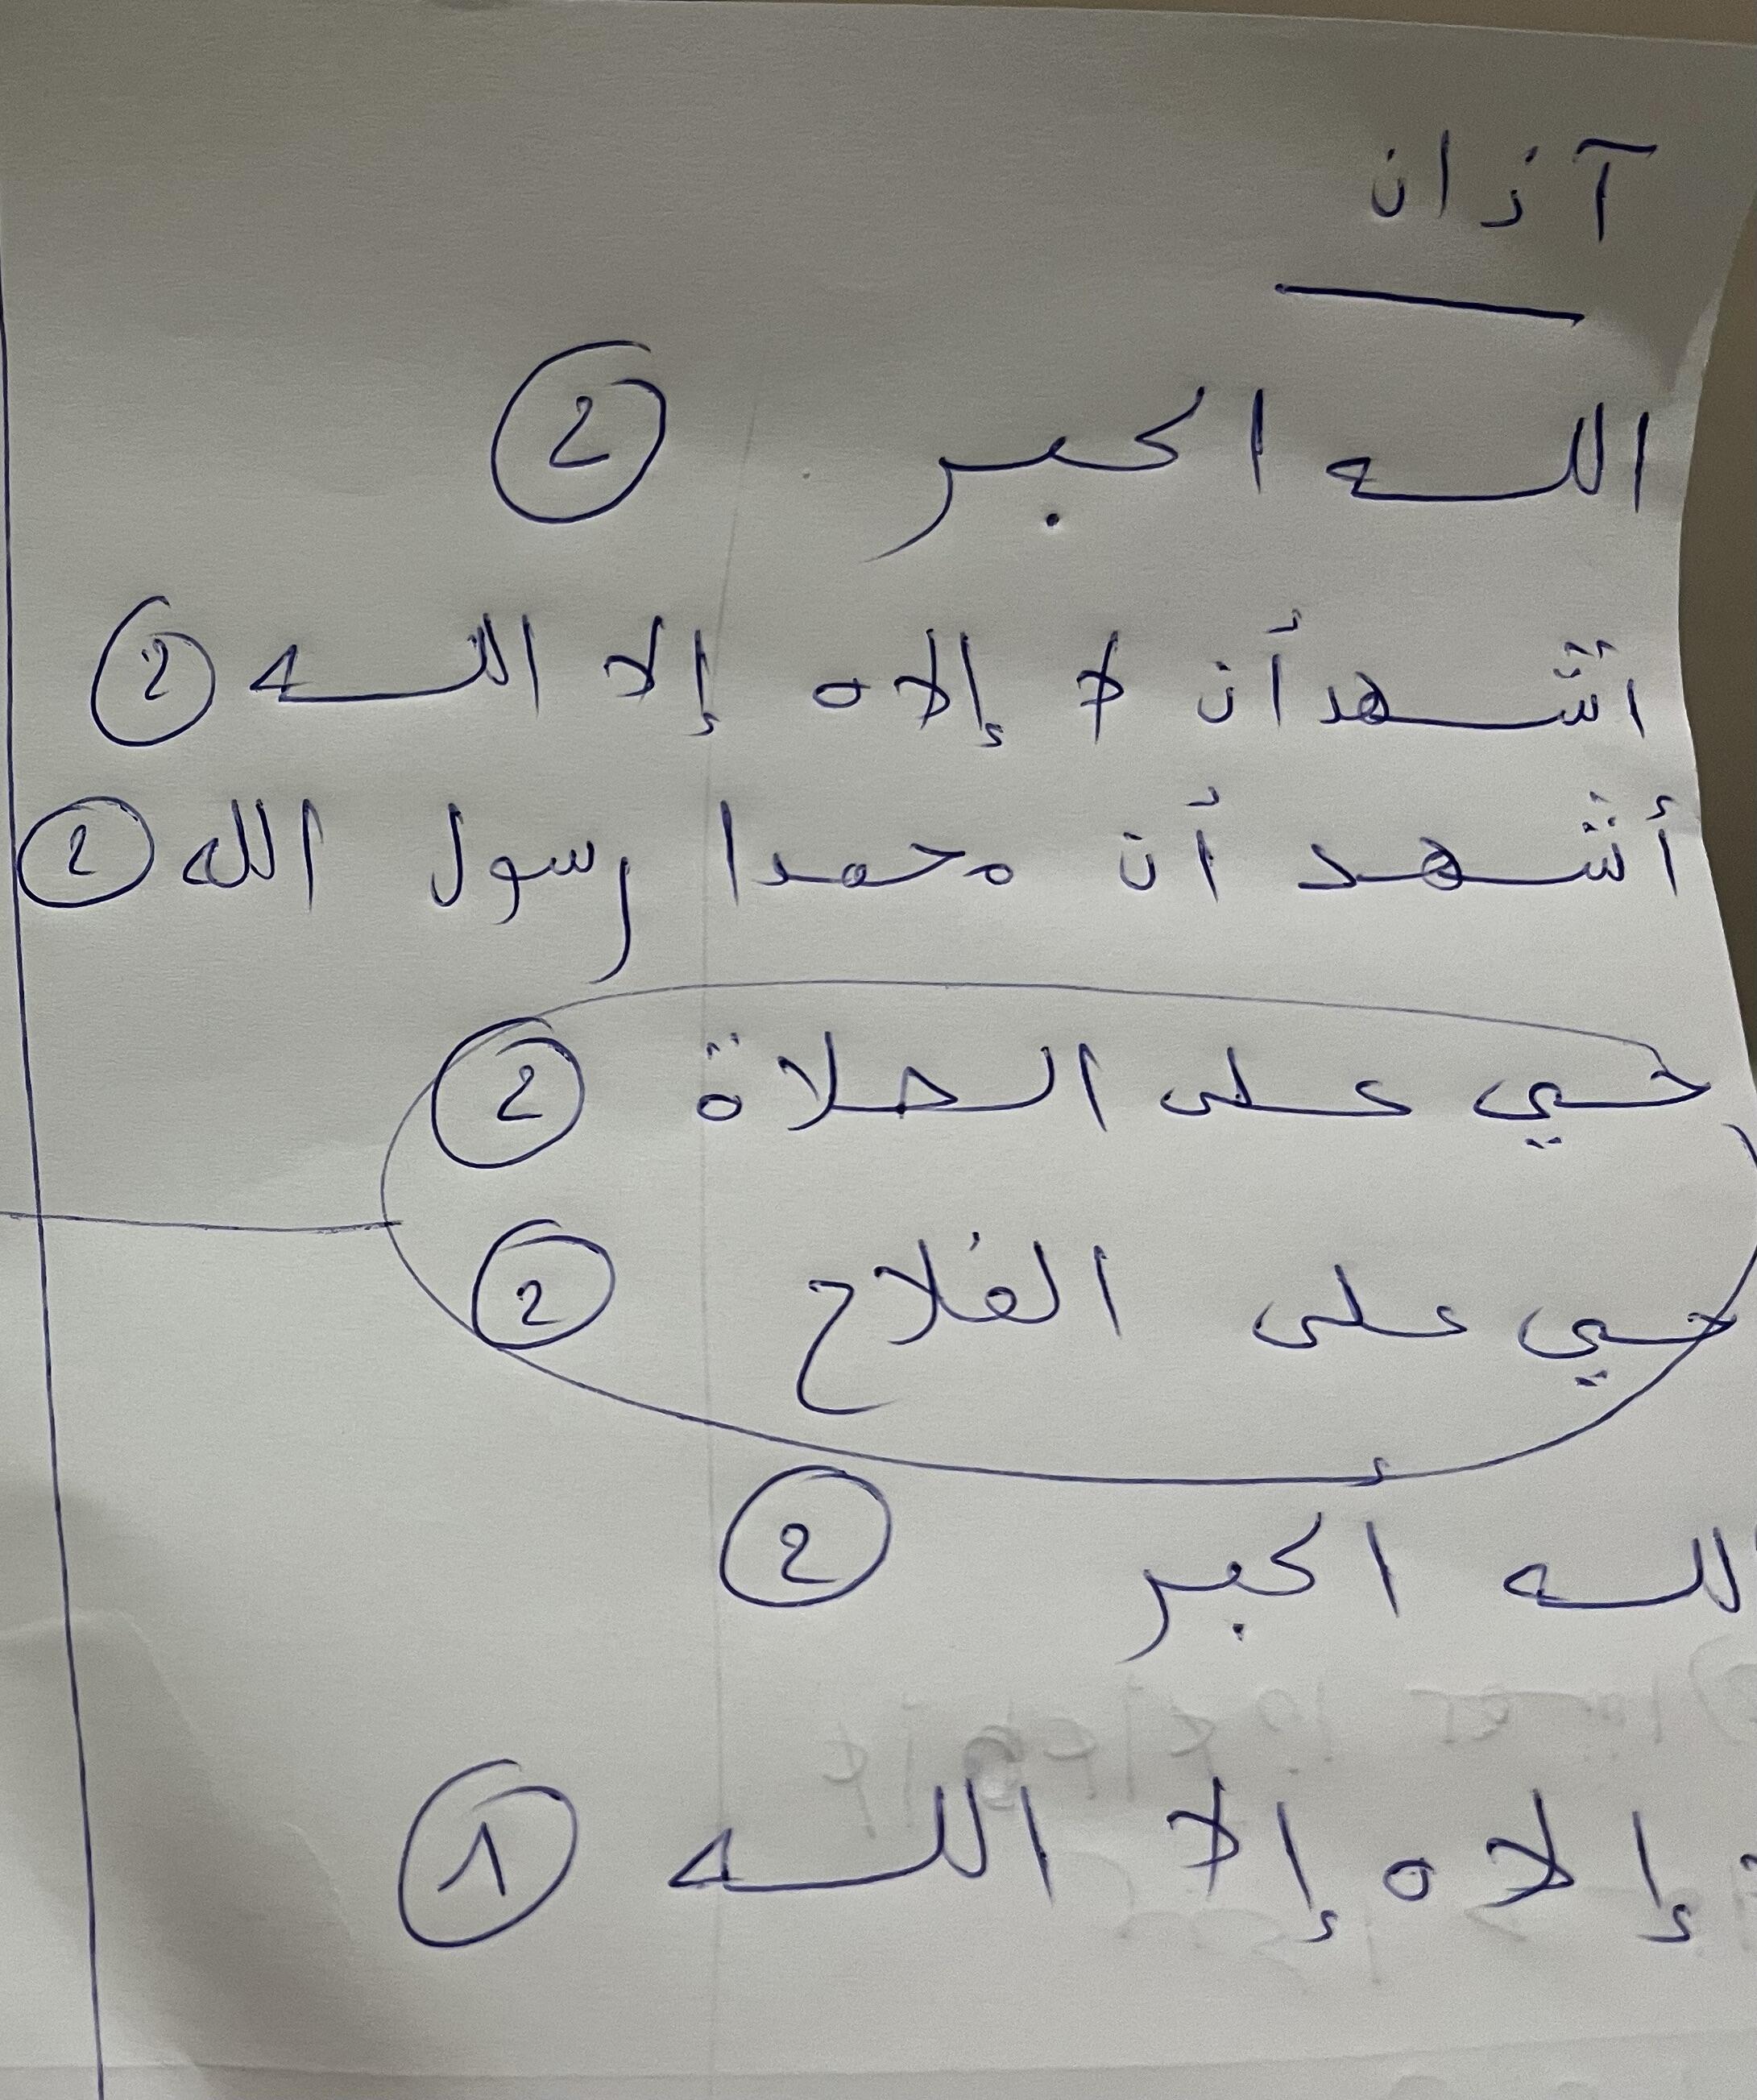 آذان
الله اكبر 2
اشهد أن لا إلاه إلا الله 2
أشهد أن محمدا رسول الله 2
حي على الصلاة 2
حي على الفلاح 2
لله أكبر 2
إلاه إلا الله 1